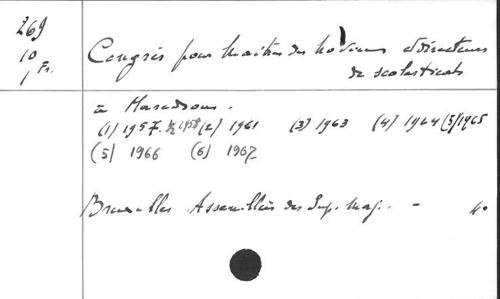 269
10
1 Fr.
Congrès pour Maîtres des Novices et directeurs
de scolasticats
à Maredsous.
(1) 1957. 1958 (2) 1961 (3) 1963 (4) 1964 (5) 1965
(5) 1966 (6) 1967
Bruxelles Assemblées des Sup. Maj. - 4o